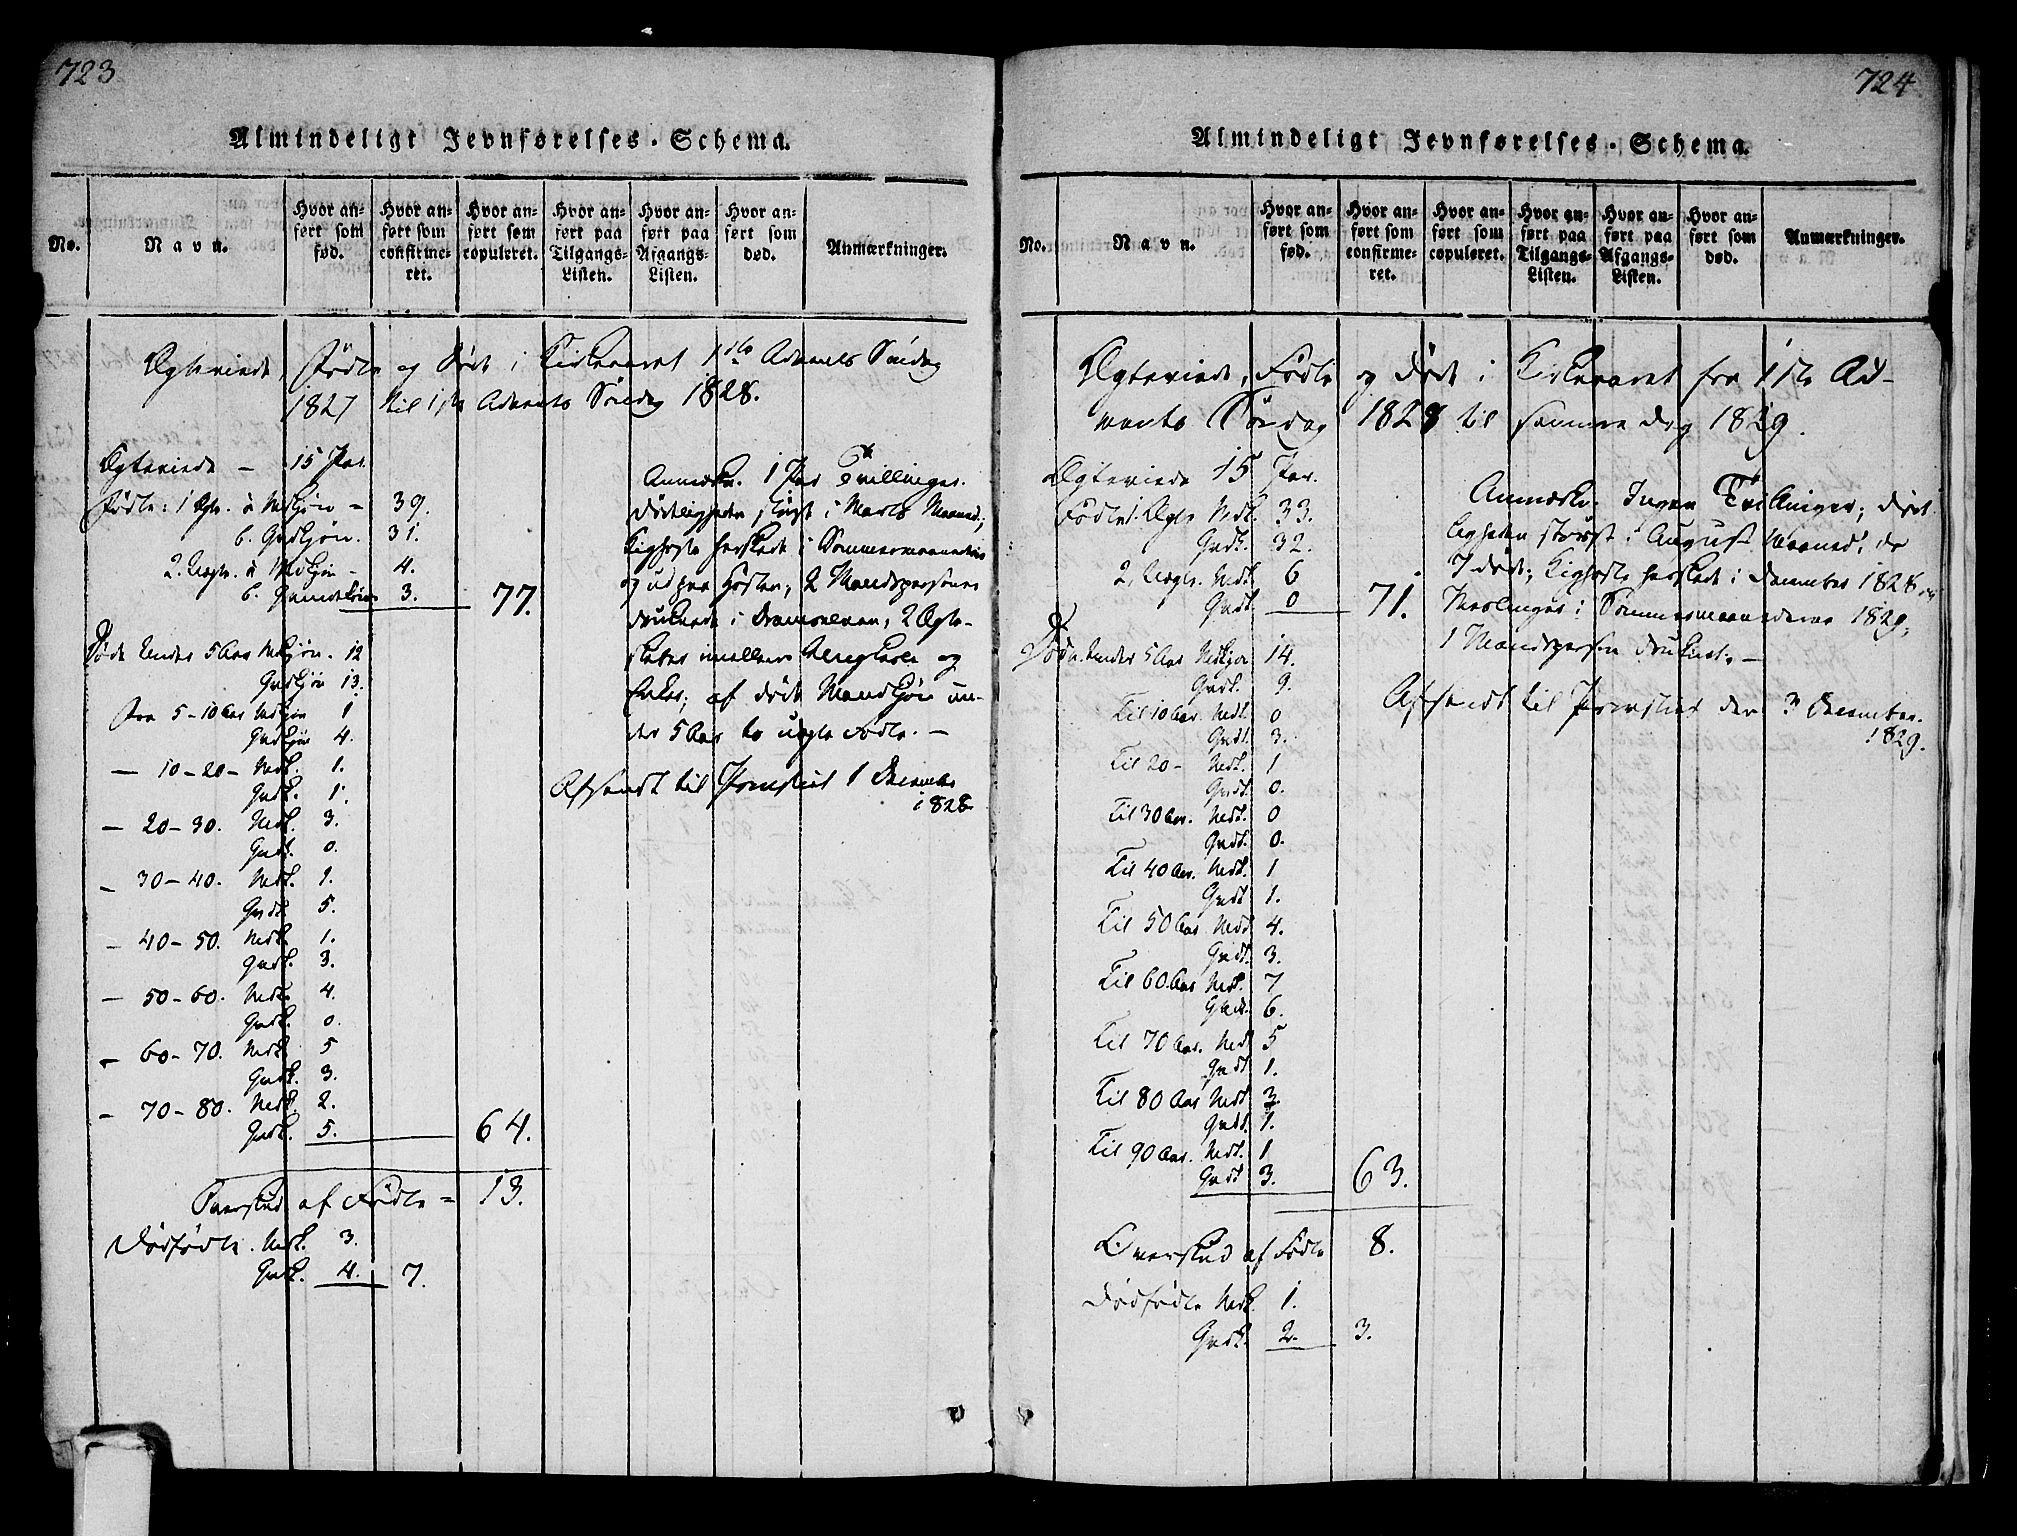 723
Almindeligt Jevnførelses-Schema.
No.
Navn.
Hvor an-
ført som
fød.
Hvor an-
ført som
confirme-
ret.
Hvor an-
ført som
copuleret.
Hvor an-
ført paa
Tilgangs-
Listen.
Hvor an-
ført paa
Afgangs-
Listen.
Hvor an-
ført som
død.
Anmærkninger.
Ægteviede, Fødte og døde i Kirkeaaret 1ste Advents Søndag
1827 til 1ste Advents Søndag 1828.
Ægteviede - 15 Par.
Fødte: 1 Ægte. a Mdkjøn - 39.
b. Qvdkjøn. 31.
2. Uægte. a Mdkjøn - 4.
b. Qvindekiøn 3. 77.
Døde Under 5 Aar Mdkjøn. 12
Qvdkjøn 13.
Fra 5-10 Aar Mdkjøn 1
Qvdkjøn 4.
- 10-20- Mdk. 1.
Qvdk. 1.
- 20-30. Mdk. 3.
Qvdk. 0.
- 30-40. Mdk. 1.
Qvdk. 5.
- 40-50. Mdk. 1.
Qvdk. 3.
- 50-60. Mdk. 4.
Qvdk. 0.
- 60-70. Mdk. 5
Qvdk. 3.
- 70-80. Mdk. 2.
Qvdk. 5. 64.
Overskud af Fødte = 13.
Dødfødte. Mdk. 3.
Qvdk. 4. 7.
Anmærk. 1 Par Tvillinger.
Dødeligheden størst i Marts Maaned;
Kighoste herskede i Sommermaanederne
og ud paa Høsten; 2 Mandspersoner
druknede i Dramselven; 2 Ægte-
skaber imellem Ungkarle og
Enker; af døde Mandkjøn un-
der 5 Aar to uægte Fødte. -
Afsendt til Provstiet 1 December
1828
724
Almindeligt Jevnførelses-Schema.
No.
Navn.
Hvor an-
ført som
fød.
Hvor an-
ført som
confirme-
ret.
Hvor an-
ført som
copuleret.
Hvor an-
ført paa
Tilgangs-
Listen.
Hvor an-
ført paa
Afgangs-
Listen.
Hvor an-
ført som
død.
Anmærkninger.
Ægteviede, Fødte og døde i Kirkeaaret fra 1ste Ad-
vents Søndag 1828 til samme Dag 1829.
Ægteviede 15 Par.
Fødte 1. Ægte Mdk. 33.
Qvdk. 32.
2. Uægte. Mdk. 6
Qvdk. 0 71.
Døde. Under 5 Aar Mdkjøn 14.
Qvdk. 9.
Til 10 Aar. Mdk. 0
Qvdk. 3.
Til 20 - Mdk. 1
Qvdk. 0.
Til 30 Aar. Mdk. 0
Qvdk. 0.
Til 40 Aar. Mdk. 1
Qvdk 1.
Til 50 Aar Mdk 4.
Qvdk. 3.
Til 60 Aar Mdk. 7
Qvdk. 6.
Til 70 Aar. Mdk 5
Qvdk 1.
Til 80 Aar Mdk 3.
Qvdk. 1.
Til 90 Aar. Mdk. 1
Qvdk 3. 63.
Overskud af Fødte 8.
Dødfødte Mdk. 1.
Qvdk. 2. 3.
Anmærk. Ingen Tvillinger; død-
ligheden størst i August Maaned, da
7 døde; Kighoste herskede i December 1828 og
Mæslinger i Sommermaanederne 1829;
1 Mandsperson druknet. -
Afsendt til Provstiet den 3 December.
1829.